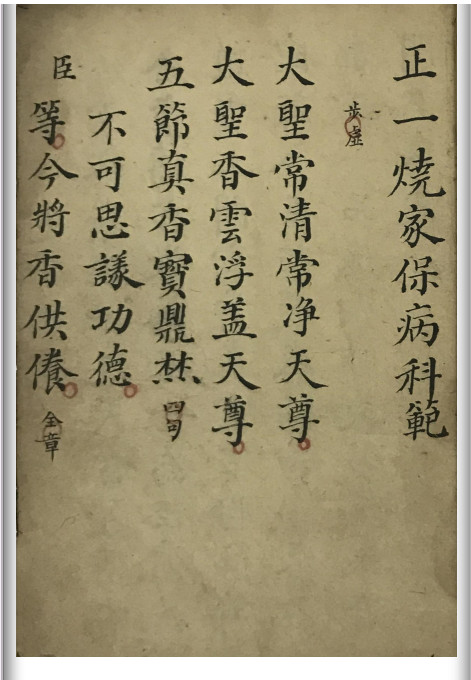 正一燒家保病科範
步虛
大聖常清常净天尊
大聖香雲浮盖天尊
五節真香寳鼎焚四句
不可思議功德
臣等今將香供養全章